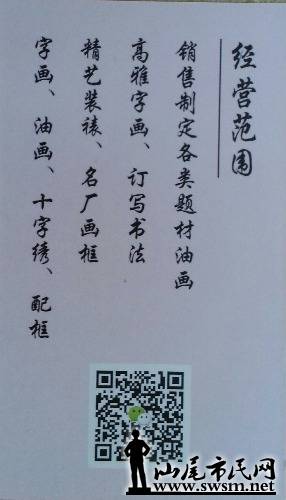 经营范围
销售制定各类题材油画
高雅字画、订写书法
精艺装裱、名厂画框
字画、油画、十字绣、配框
山尾市民网
www.swsm.net